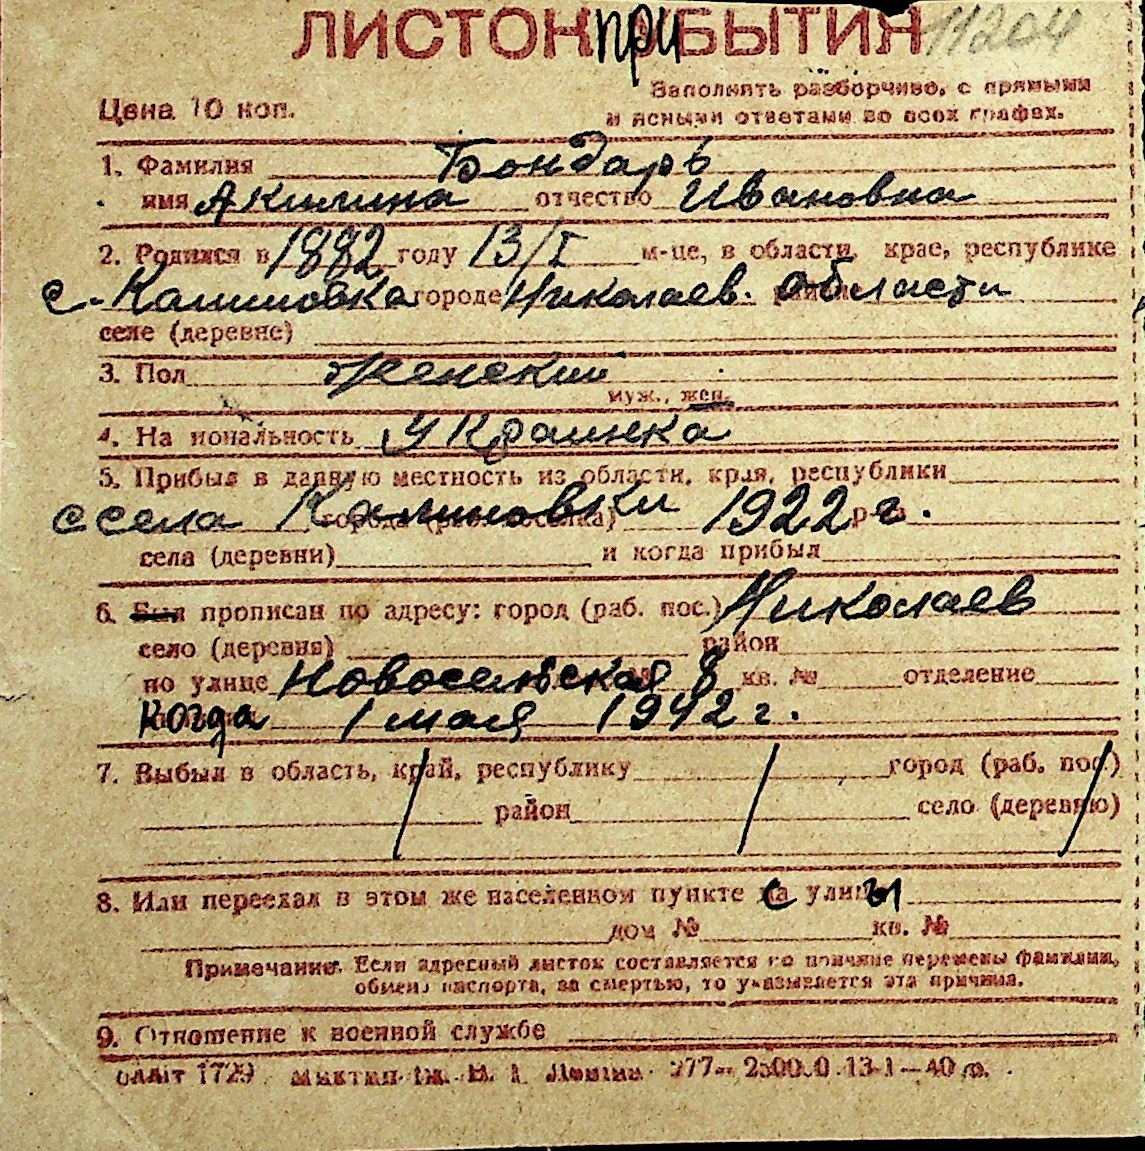 ЛИСТОК ПРИБЫТИЯ 11204
Заполнять разборчиво, с прямыми
Цена 10 коп.
и ясными ответами во всех графах.
1. Фамилия Бондарь
имя Акилина отчество Ивановна
2. Родился в 1882 году 13/I м-це, в области, крае, республике
с. Калиновка городе Николаев. области
селе (деревне)
3. Пол женский
муж., жен.
4. Национальность Украинка
5. Прибыл в данную местность из области, края, республики
с села Калиновки города 1922 г.
села (деревни) и когда прибыл
6. Был прописан по адресу: город (раб. пос.) Николаев
село (деревня) район
по улице Новосельская 8 кв. № отделение
когда 1 мая 1942 г.
7. Выбыл в область, край, республику город (раб. пос.)
район село (деревню)
8. Или переехал в этом же населенном пункте с улицы
дом № кв. №
Примечание. Если адресный листок составляется по причине перемены фамилии,
обмена паспорта, за смертью, то указывается эта причина.
9. Отношение к военной службе
1729 13-1—40